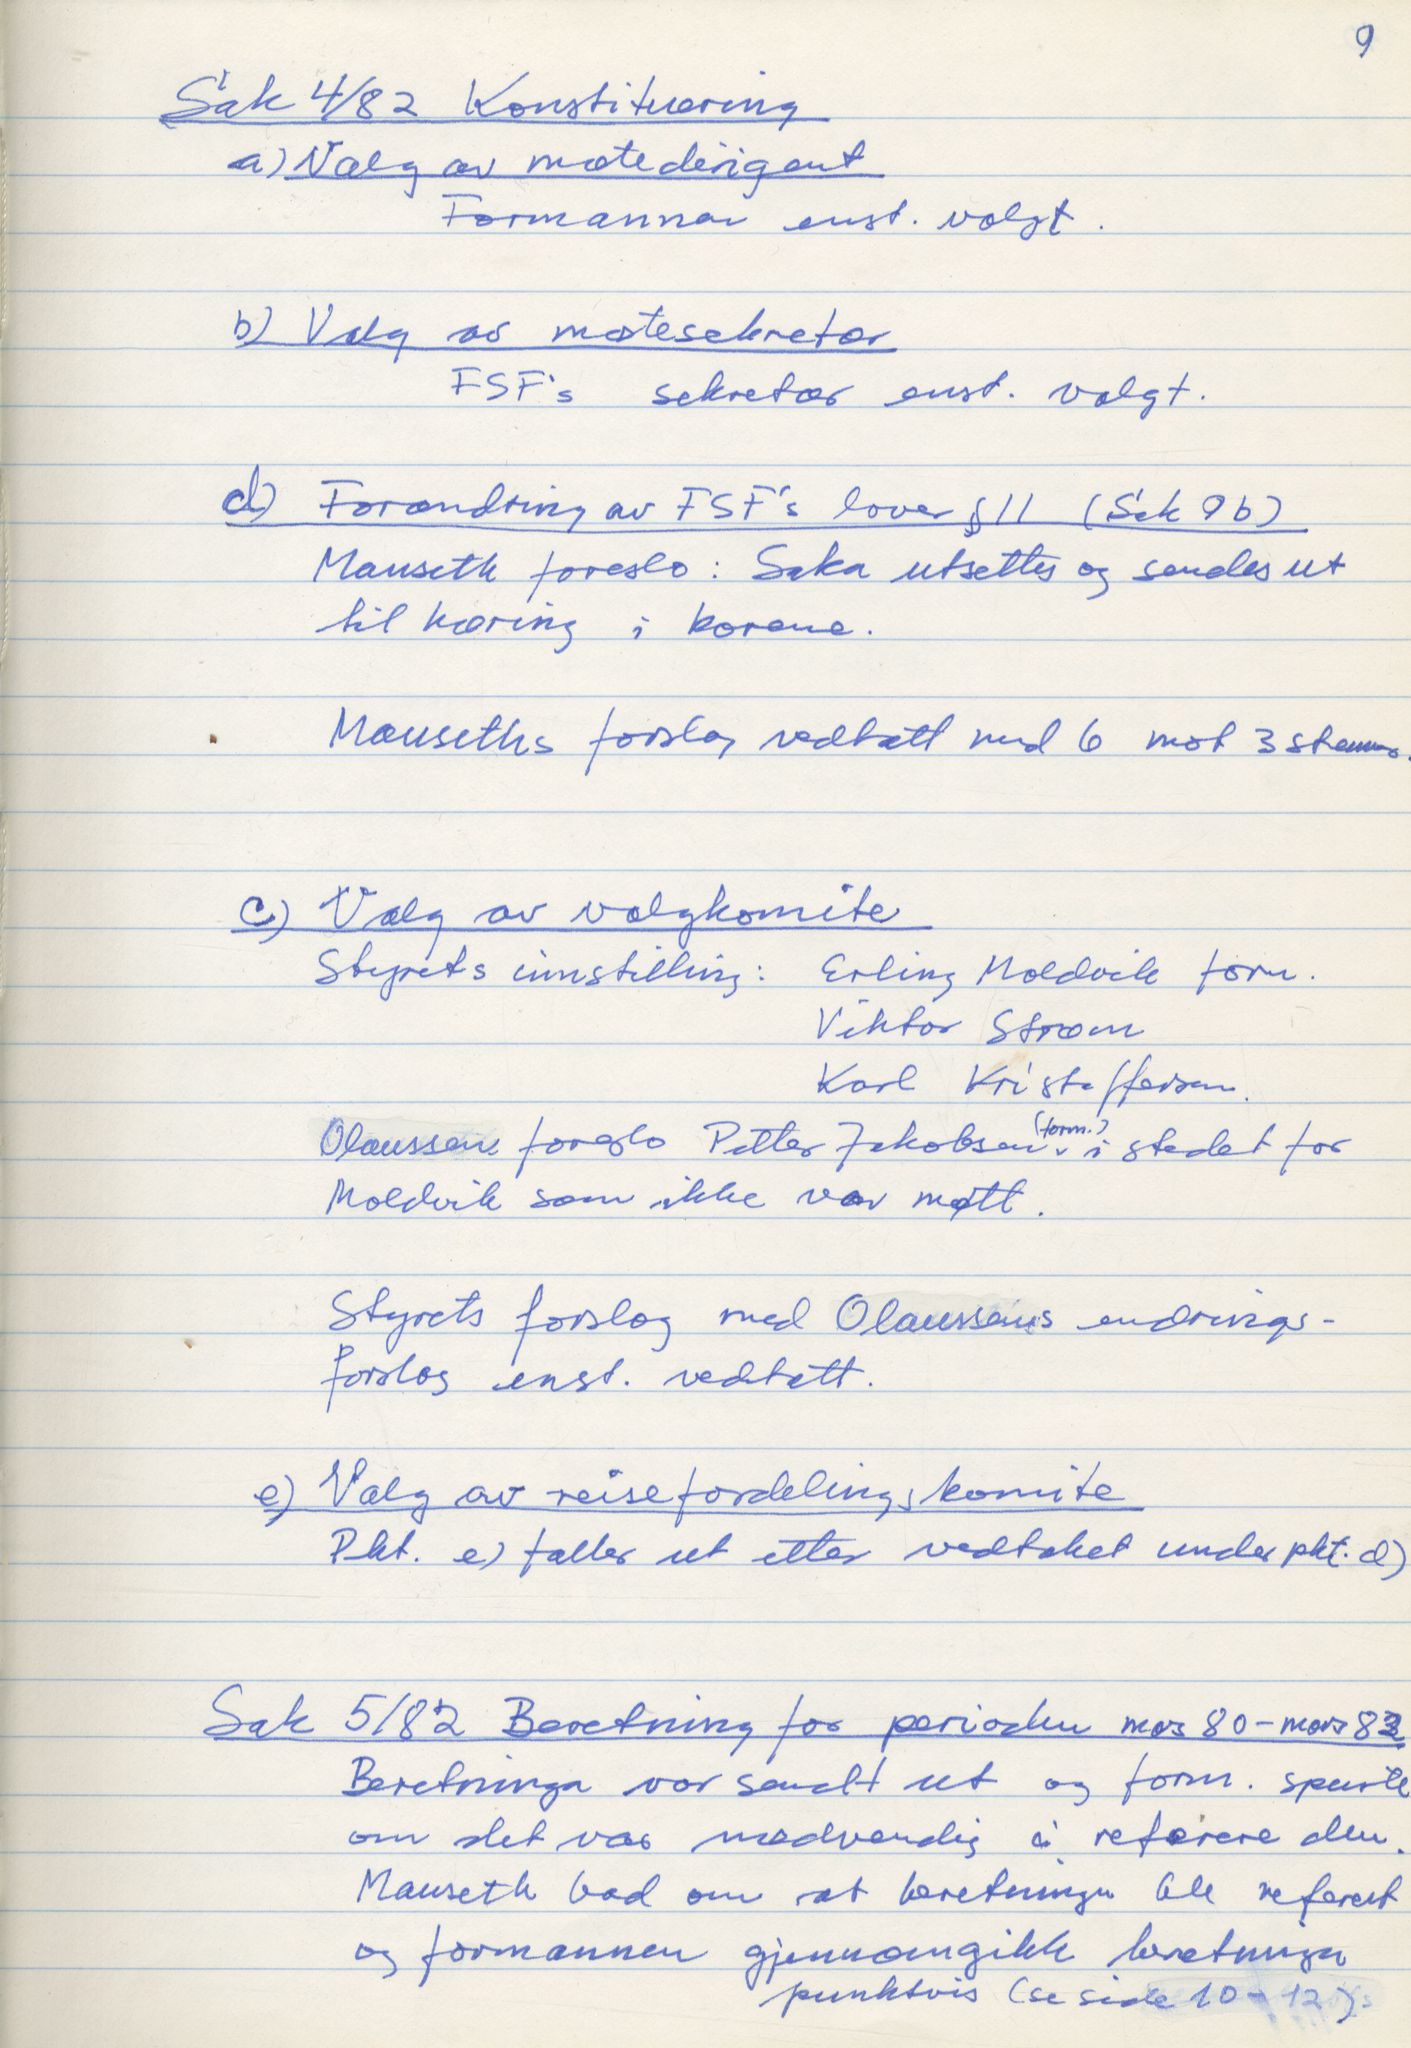 9
Sak 4/82 Konstituering
a) Valg av møtedirigent
Formannen enst. valgt.
b) Valg av møtesekretær
FSF's sekretær enst. valgt.
d) Forandring av FSF's lover §11 (Sak 9b)
Mauseth foreslo: Saka utsettes og sendes ut
til høring i korene.
Mauseths forslag vedtatt med 6 mot 3 stemmer.
c) Valg av valgkomite
Styrets innstilling: Erling Moldvik form.
Viktor Strøm
Karl Kristoffersen.
Olaussen foreslo Petter Jakobsen (form.) i stedet for
Moldvik som ikke var møtt.
Styrets forslag med Olaussens endrings-
forslag enst. vedtatt.
e) Valg av reisefordelingskomite
Pkt. e) faller ut etter vedtaket under pkt. d)
Sak 5/82 Beretning for perioden mars 80 - mars 82
Beretninga var sendt ut og form. spurte
om det var nødvendig å referere den.
Mauseth bad om at beretninga ble referert
og formannen gjennomgikk beretninga
punktvis (se side 10 - 12)